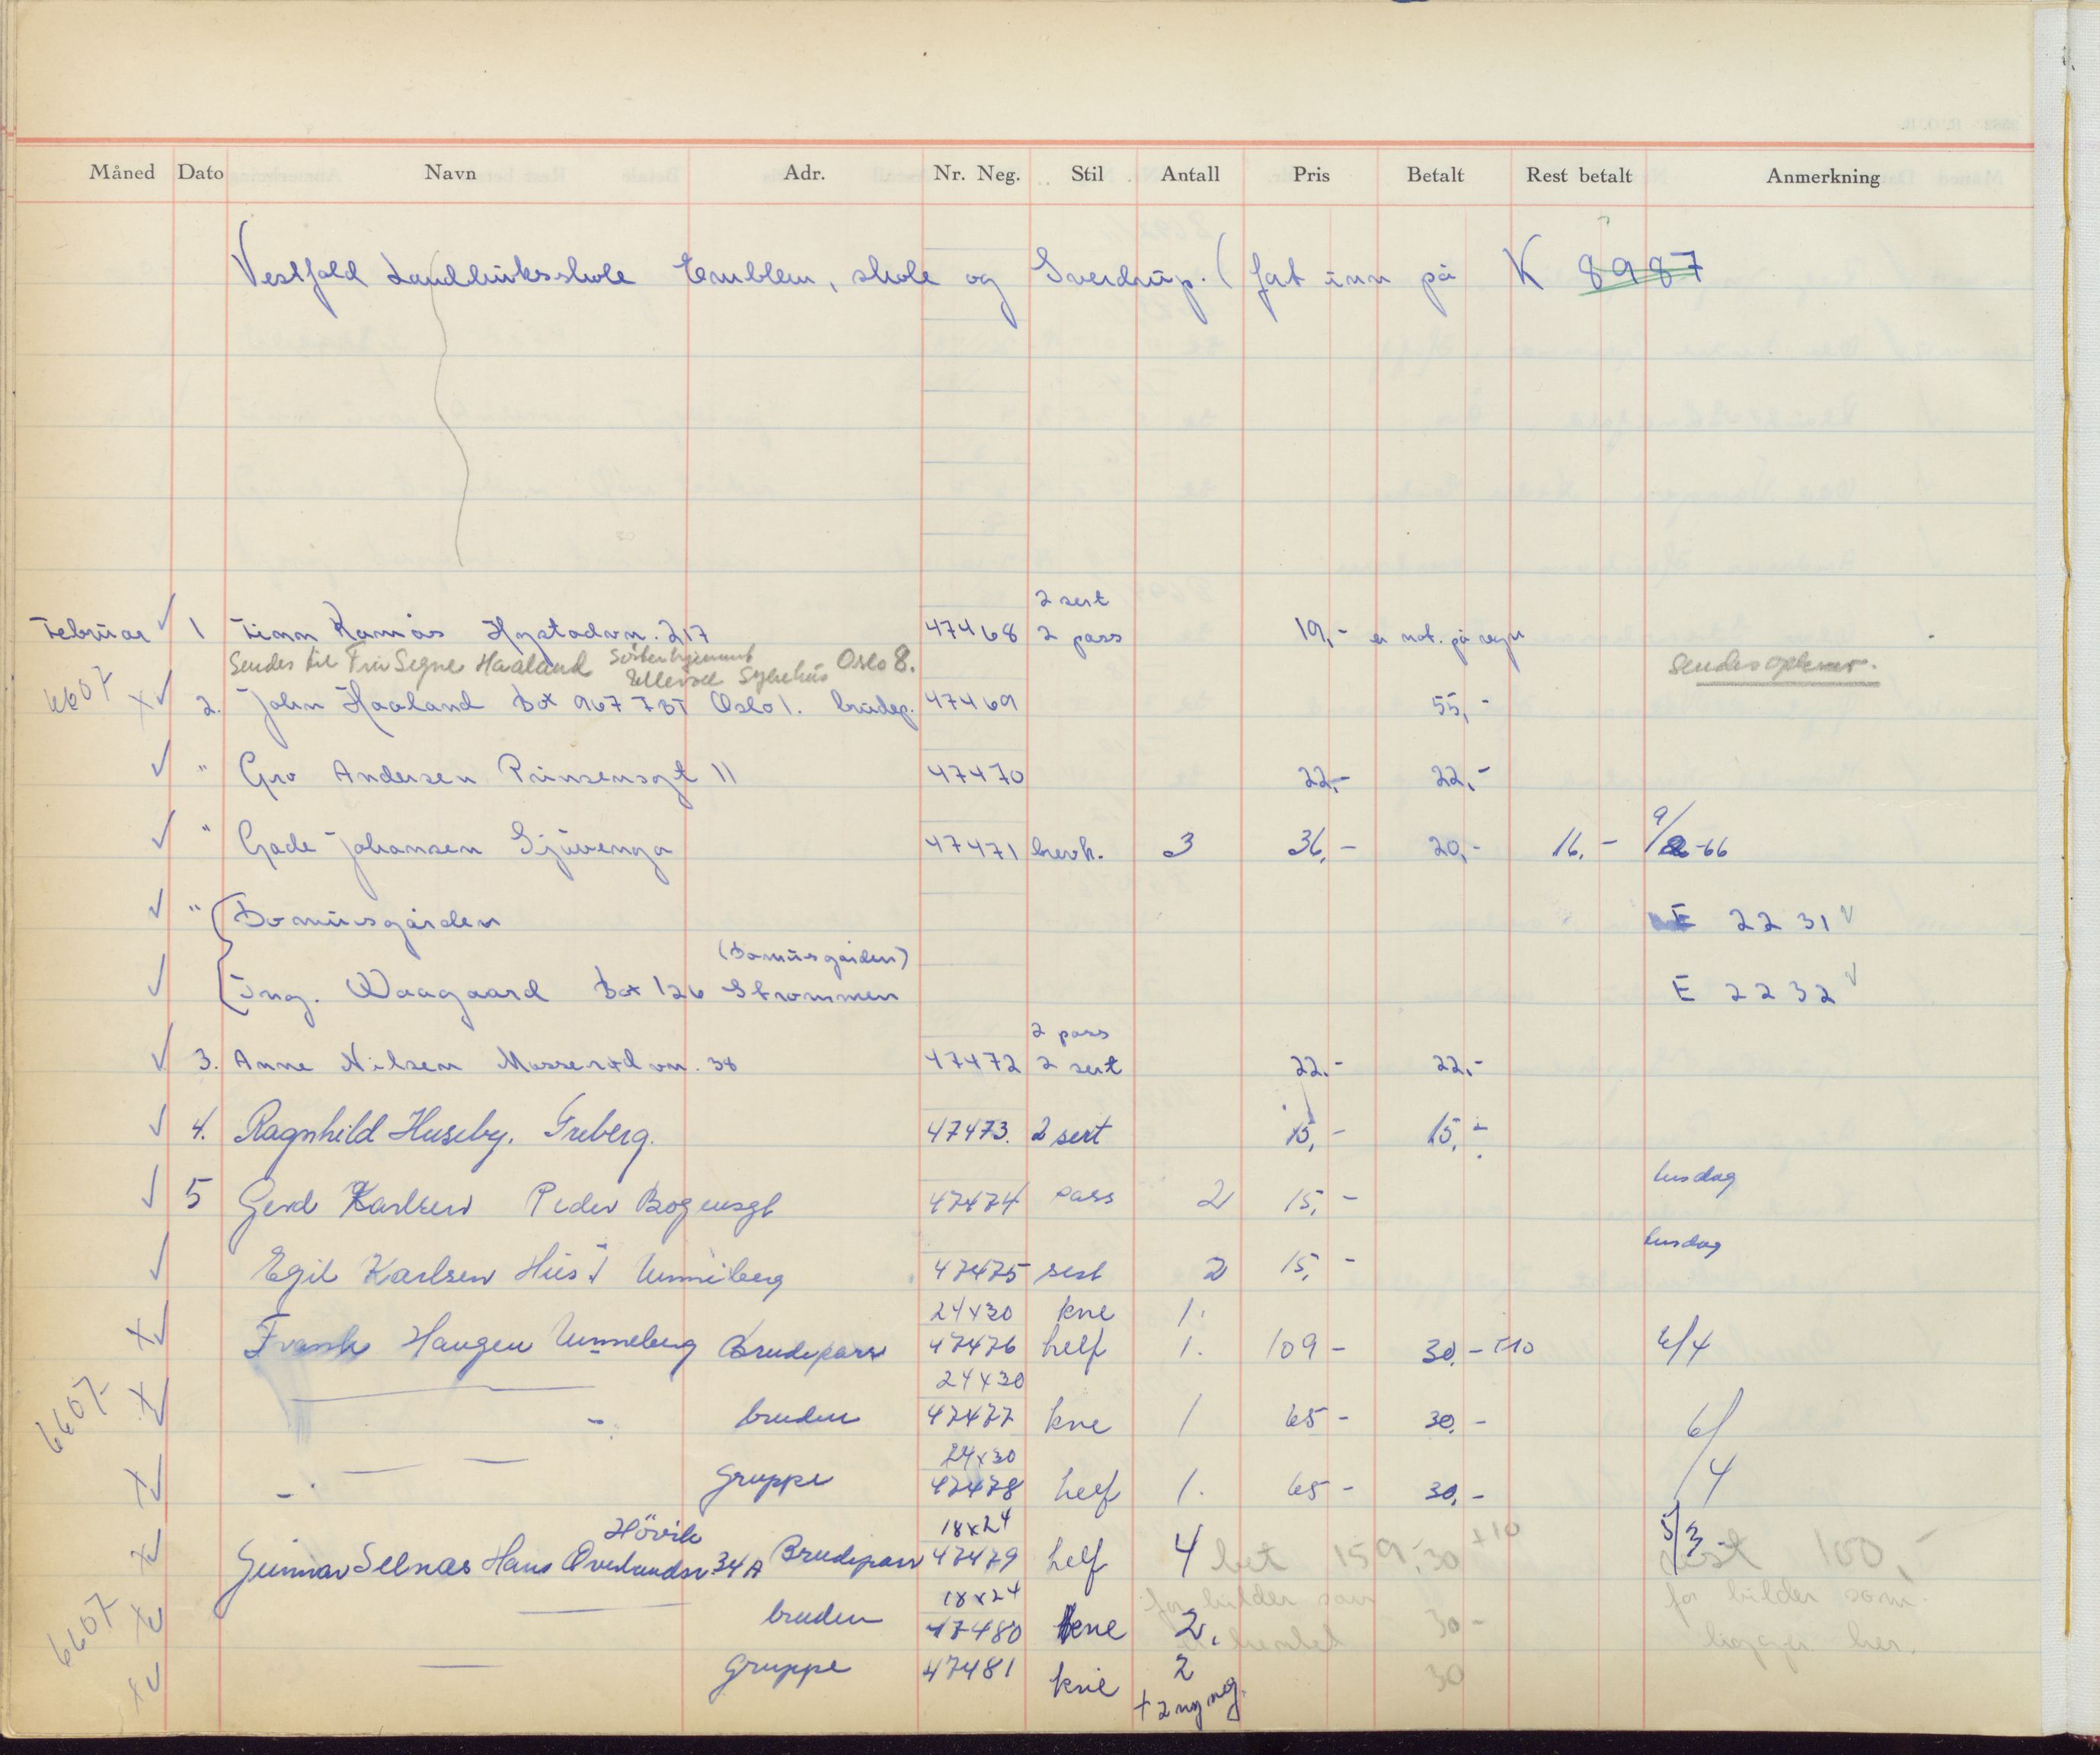 Måned Dato Navn Adr. Nr. Neg. Stil Antall Pris Betalt Rest betalt Anmerkning
Vestfold Landbruksskole Emblem, skole og Sverdrup. ( ført inn på K 8987
2 sert
Februar 1 Finn Ramås Hystadvn. 217 47468 2 pass 19,- er not. på regn
Sendes til Fru Signe Haaland Søsterhjemmet Ullevål Sykehus Oslo 8. Sendes oppkrav.
6607 2. John Haaland Box 967 Oslo 1. brudep. 47469 55,-
" Gro Andersen Prinsensgt 11 47470 22,- 22,-
" Gade Johansen Gjuvenga 47471 brevk. 3 36,- 20,- 16,- 9/2-66
" Domusgården E 2231
(Domusgården)
Ing. Waagaard Box 126 Strømmen E 2232
2 pass
3. Anne Nilsen Mosserødvn. 38 47472 2 sert 22,- 22,-
4. Ragnhild Huseby. Freberg. 47473. 2 sert 15,- 15,-
5 Gerd Karlsen Peder Bogensgt 47474 pass 2 15,- tirsdag
Egil Karlsen Hus I Unneberg 47475 sert 2 15,- tirsdag
24x30 kne 1.
Frank Haugen Unneberg Brudepar 47476 helf 1. 109 - 30,- +10 6/4
24x30
6607 — " — bruden 47477 kne 1 65 - 30,- 6/4
24x30
— " — gruppe 47478 helf 1. 65 - 30,-
Hövik 18x24
Gunnar Selnæs Hans Øverlandsv. 34A Brudepar 47479 helf 4 bet 159,- 30 +10 5/3 rest 100,-
18x24 for bilder som for bilder som
6607 — bruden 47480 kne 2. er hentet 30 - ligger her.
— gruppe 47481 kne 2 30
+ 2 ny neg.